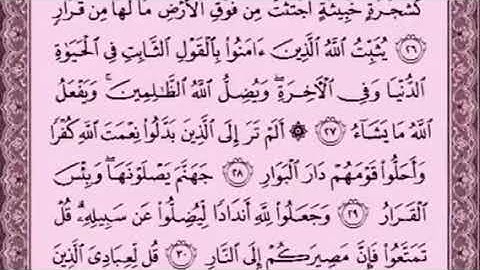 كَشَجَرَةٍ خَبِيثَةٍ ٱجْتُثَّتْ مِن فَوْقِ ٱلْأَرْضِ مَا لَهَا مِن قَرَارٍ
٢٦ يُثَبِّتُ ٱللَّهُ ٱلَّذِينَ ءَامَنُوا۟ بِٱلْقَوْلِ ٱلثَّابِتِ فِى ٱلْحَيَوٰةِ
ٱلدُّنْيَا وَفِى ٱلْـَٔاخِرَةِ ۖ وَيُضِلُّ ٱللَّهُ ٱلظَّٰلِمِينَ ۚ وَيَفْعَلُ
ٱللَّهُ مَا يَشَآءُ ٢٧ ۞ أَلَمْ تَرَ إِلَى ٱلَّذِينَ بَدَّلُوا۟ نِعْمَتَ ٱللَّهِ كُفْرًا
وَأَحَلُّوا۟ قَوْمَهُمْ دَارَ ٱلْبَوَارِ ٢٨ جَهَنَّمَ يَصْلَوْنَهَا ۖ وَبِئْسَ
ٱلْقَرَارُ ٢٩ وَجَعَلُوا۟ لِلَّهِ أَندَادًا لِّيُضِلُّوا۟ عَن سَبِيلِهِۦ ۗ قُلْ
تَمَتَّعُوا۟ فَإِنَّ مَصِيرَكُمْ إِلَى ٱلنَّارِ ٣٠ قُل لِّعِبَادِىَ ٱلَّذِينَ